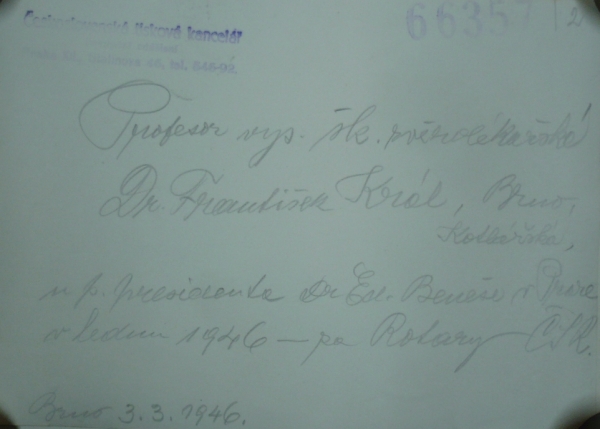 Československá tisková kancelář
66357 2
Profesor vys. šk. zvěrolékařské
Dr. František Král, Brno,
Kotlářská,
u p. presidenta Dr Ed. Beneše v Praze
v lednu 1946 — za Rotary ČSR.
Brno 3.3.1946.